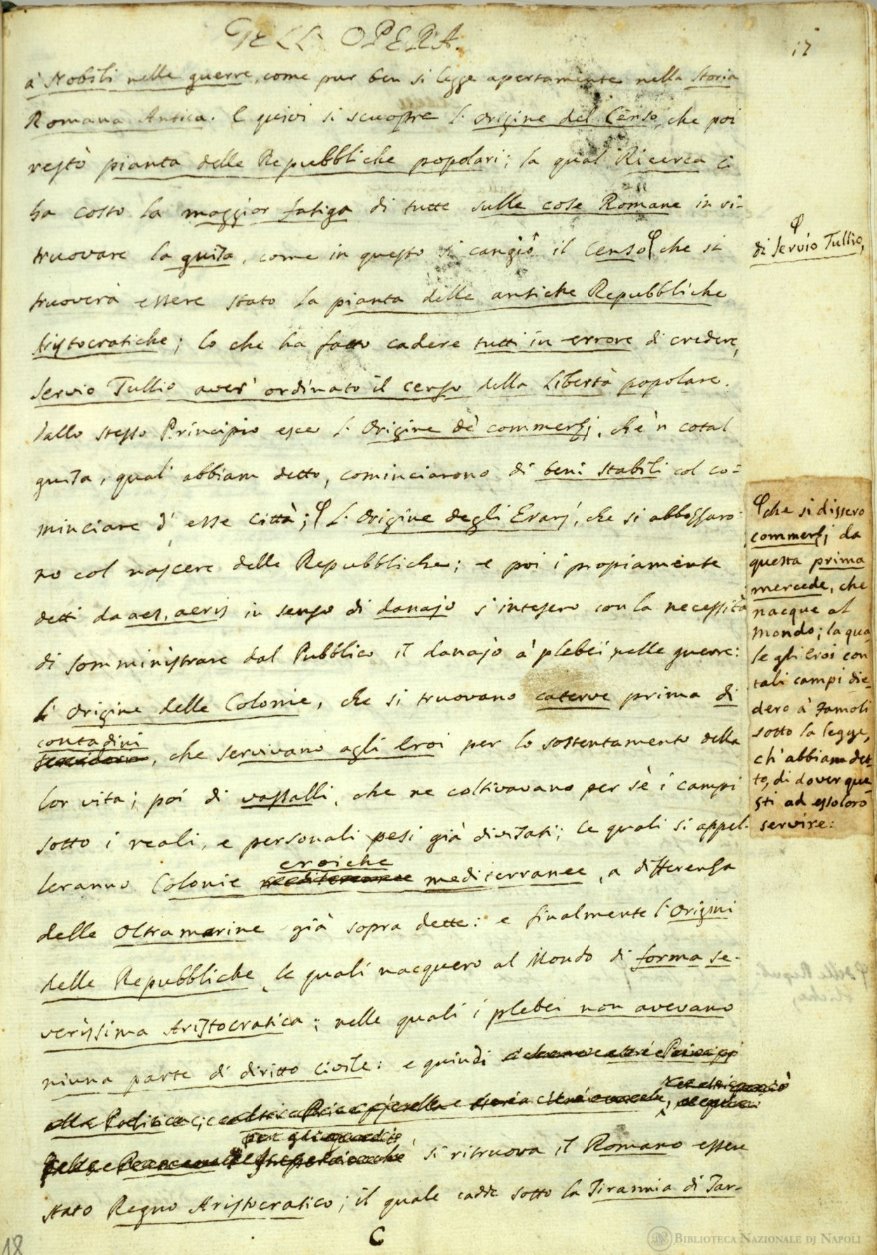 DELL' OPERA.
17
à Nobili nelle guerre, come pur ben si legge apertamente nella Storia
Romana Antica. E quivi si scuopre l' Origine del Censo, che poi
restò pianta delle Repubbliche popolari; la qual Ricerca ci
ha costo la maggior fatiga di tutte sulle cose Romane in ri-
truovare la guisa, come in questo si cangiò il Censo φ che si
truoverà essere stato la pianta delle antiche Repubbliche
Aristocratiche; lo che ha fatto cadere tutti in errore di credere,
Servio Tullio aver' ordinato il censo della Libertà popolare.
Dallo stesso Principio esce l' Origine de' commerzj, che 'n cotal
guisa, qual' abbiam detto, cominciarono di beni stabili col co-
minciare d' esse Città; φ L' Origine degli Erarj, che si abbozzaro-
no col nascere delle Repubbliche; e poi i propiamente
detti da aes, aeris in senso di danajo s' intesero con la necessità
di somministrare dal Pubblico il danajo a' plebei nelle guerre:
l' Origine delle Colonie, che si truovano caterve prima di
contadini
, che servivano agli Eroi per lo sostentamento della
lor vita; poi di vassalli, che ne coltivavano per sè i campi
sotto i reali, e personali pesi già divisati; le quali si appel-
leranno Colonie
eroiche
mediterranee, a differenza
delle Oltramarine già sopra dette: e finalmente l' Origini
delle Repubbliche, le quali nacquero al Mondo di forma se-
verissima Aristocratica; nelle quali i plebei non avevano
niuna parte di diritto civile: e quindi
si ritruova il Romano essere
stato Regno Aristocratico; il quale cadde sotto la Tirannia di Tar-
C
φ
di Servio Tullio,
φ che si dissero
commerzj da
questa prima
mercede, che
nacque al
Mondo; la qua
le gli Eroi con
tali campi die-
dero a' Famoli
sotto la legge,
ch' abbiam det-
to, di dover que-
sti ad essoloro
servire:
18
BIBLIOTECA NAZIONALE DI NAPOLI